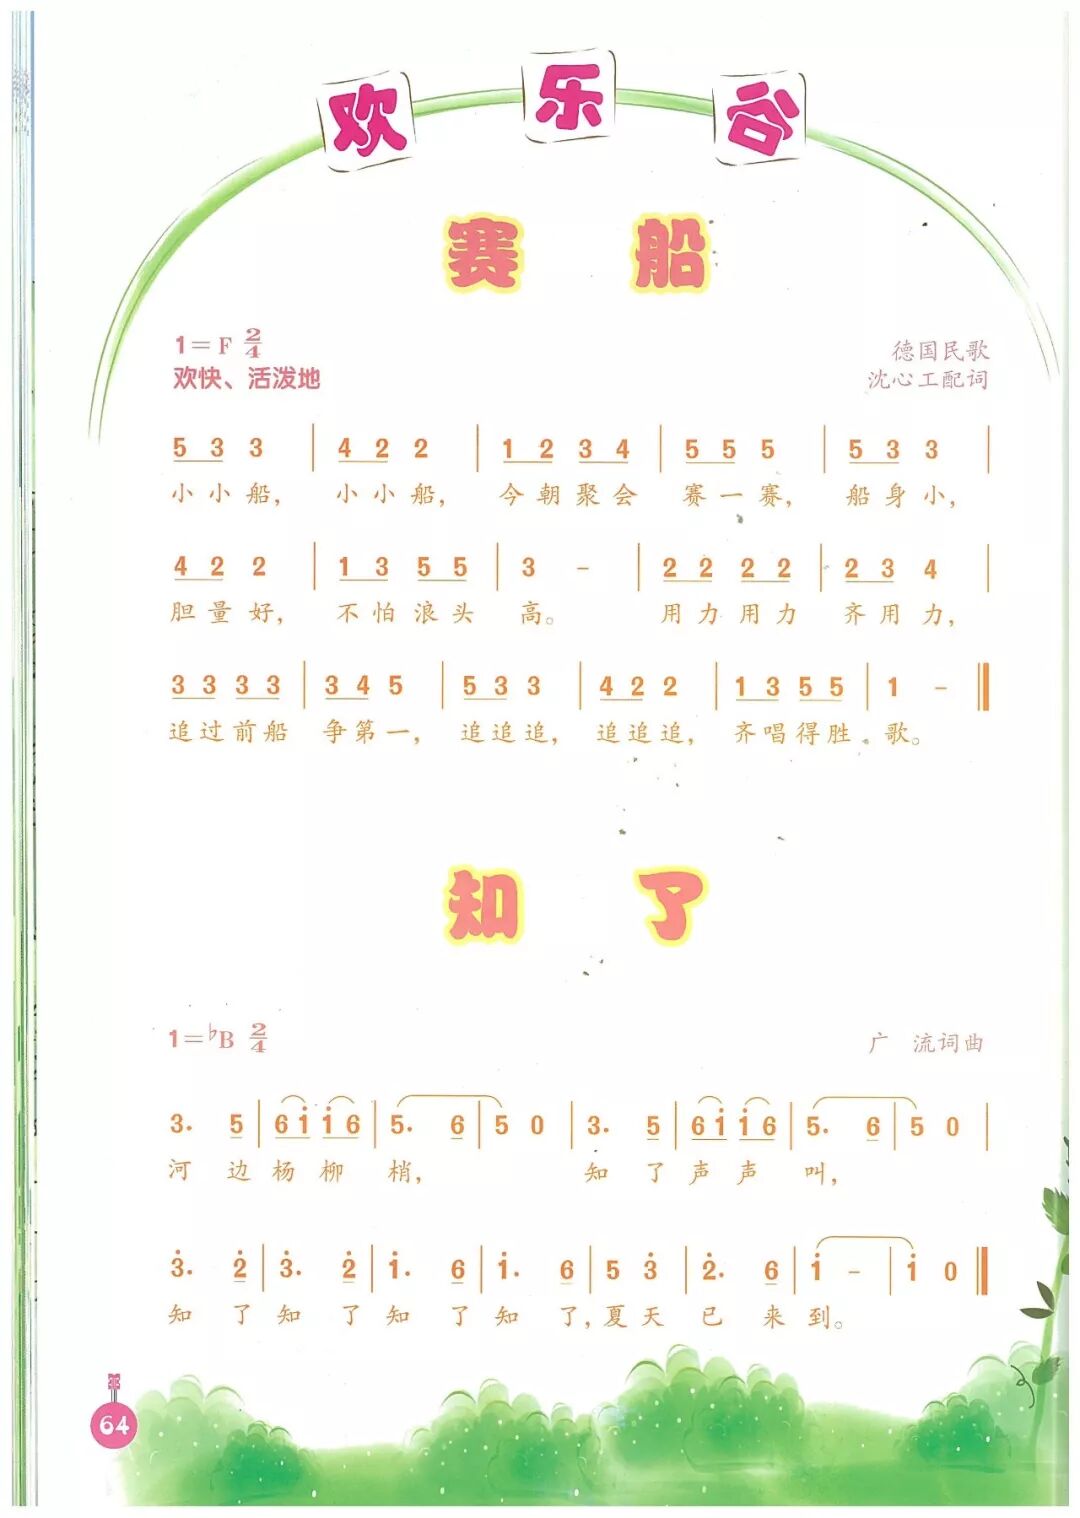 欢乐谷
赛船
1=F 2/4
德国民歌
欢快、活泼地
沈心工配词
5 3 3 | 4 2 2 | 1 2 3 4 | 5 5 5 | 5 3 3 |
小小船, 小小船, 今朝聚会 赛一赛, 船身小,
4 2 2 | 1 3 5 5 | 3 – | 2 2 2 2 | 2 3 4 |
胆量好, 不怕浪头 高。 用力用力 齐用力,
3 3 3 3 | 3 4 5 | 5 3 3 | 4 2 2 | 1 3 5 5 | 1 – ‖
追过前船 争第一, 追追追, 追追追, 齐唱得胜 歌。
知了
1=♭B 2/4
广 流词曲
3. 5 | 6 i i 6 | 5. 6 | 5 0 | 3. 5 | 6 i i 6 | 5. 6 | 5 0 |
河 边 杨 柳 梢, 知 了 声 声 叫,
3̇. 2̇ | 3̇. 2̇ | i. 6 | i. 6 | 5 3̇ | 2̇. 6 | i – | i 0 ‖
知 了 知 了 知 了 知 了, 夏 天 已 来 到。
64